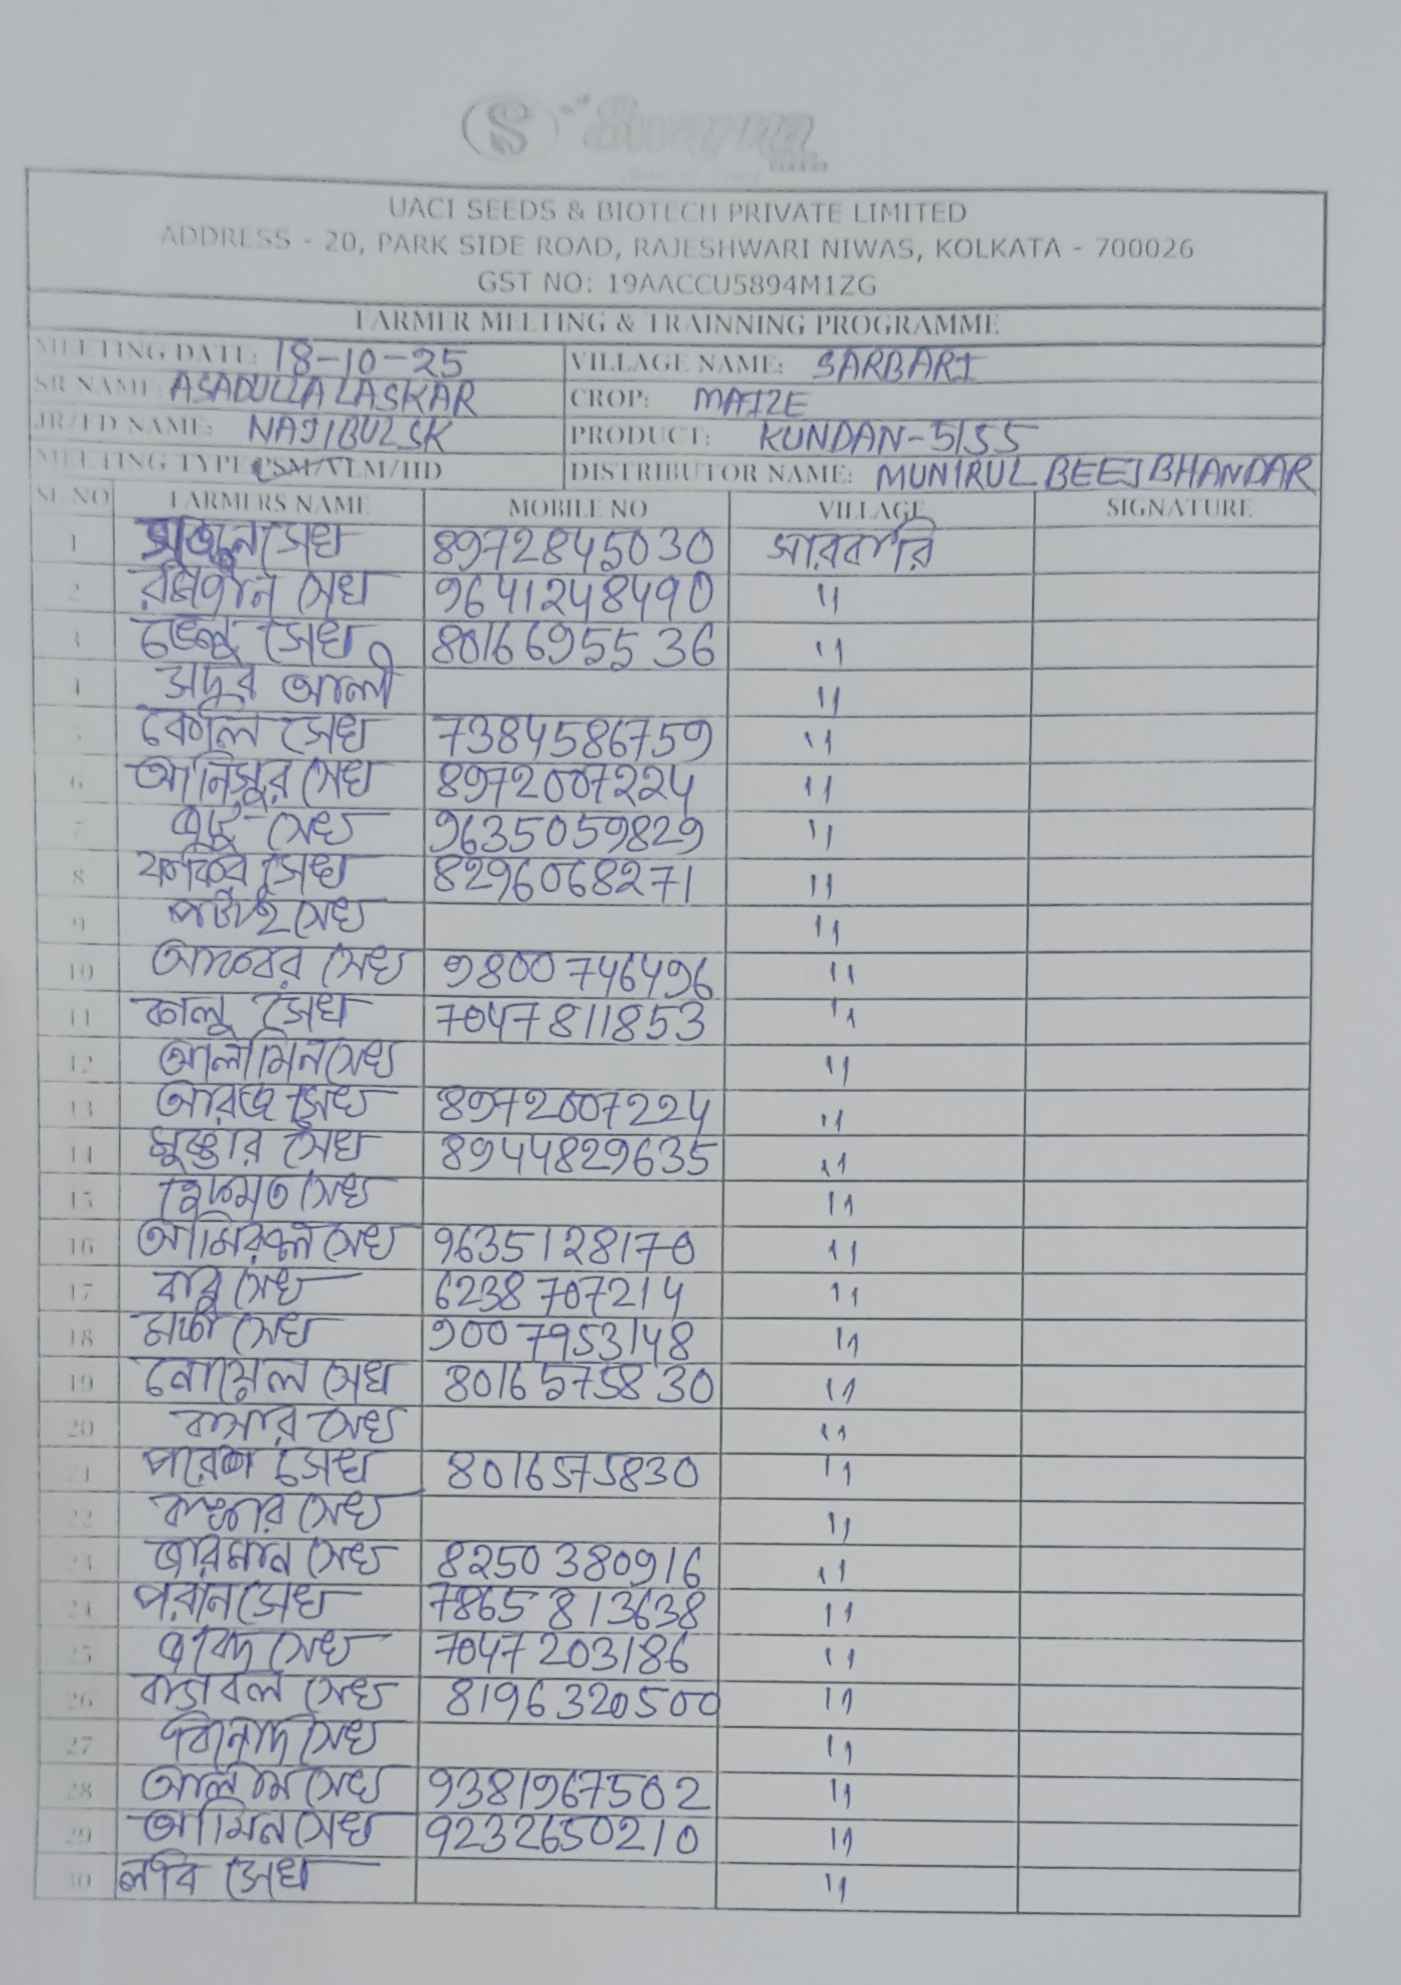 S Swarna
UACI SEEDS & BIOTECH PRIVATE LIMITED
ADDRESS - 20, PARK SIDE ROAD, RAJESHWARI NIWAS, KOLKATA - 700026
GST NO: 19AACCU5894M1ZG
FARMER MEETING & TRAINNING PROGRAMME
MEETING DATE: 18-10-25 VILLAGE NAME: SARBARI
SR NAME: ASADULLA LASKAR CROP: MAIZE
JR/FD NAME: NAJIBUL SK PRODUCT: KUNDAN-5155
MEETING TYPE PSM/VLM/HD DISTRIBUTOR NAME: MUNIRUL BEEJ BHANDAR
SL NO FARMERS NAME MOBILE NO VILLAGE SIGNATURE
1 সেখ 8972845030 সারবারি
2 সেখ 9641248490 "
3 সেখ 8016695536 "
4 আলী "
5 কালি সেখ 7384586759 "
6 আনিসুর সেখ 8972007224 "
7 সেখ 9635059829 "
8 ফকির সেখ 8296068271 "
9 সেখ "
10 আকবর সেখ 9800746496 "
11 কালু সেখ 7047811853 "
12 আলামিন সেখ "
13 সেখ 8972007224 "
14 মুক্তার সেখ 8944829635 "
15 সেখ "
16 আমিরুল সেখ 9635128170 "
17 বাবু সেখ 6238707214 "
18 সেখ 9007953148 "
19 সেখ 8016575830 "
20 সেখ "
21 পরেশ সেখ 8016575830 "
22 সেখ "
23 সেখ 8250380916 "
24 পরান সেখ 7865813638 "
25 সেখ 7047203186 "
26 সেখ 8196320500 "
27 সেখ "
28 আলিম সেখ 9381967502 "
29 আমিন সেখ 9232650210 "
30 সেখ "